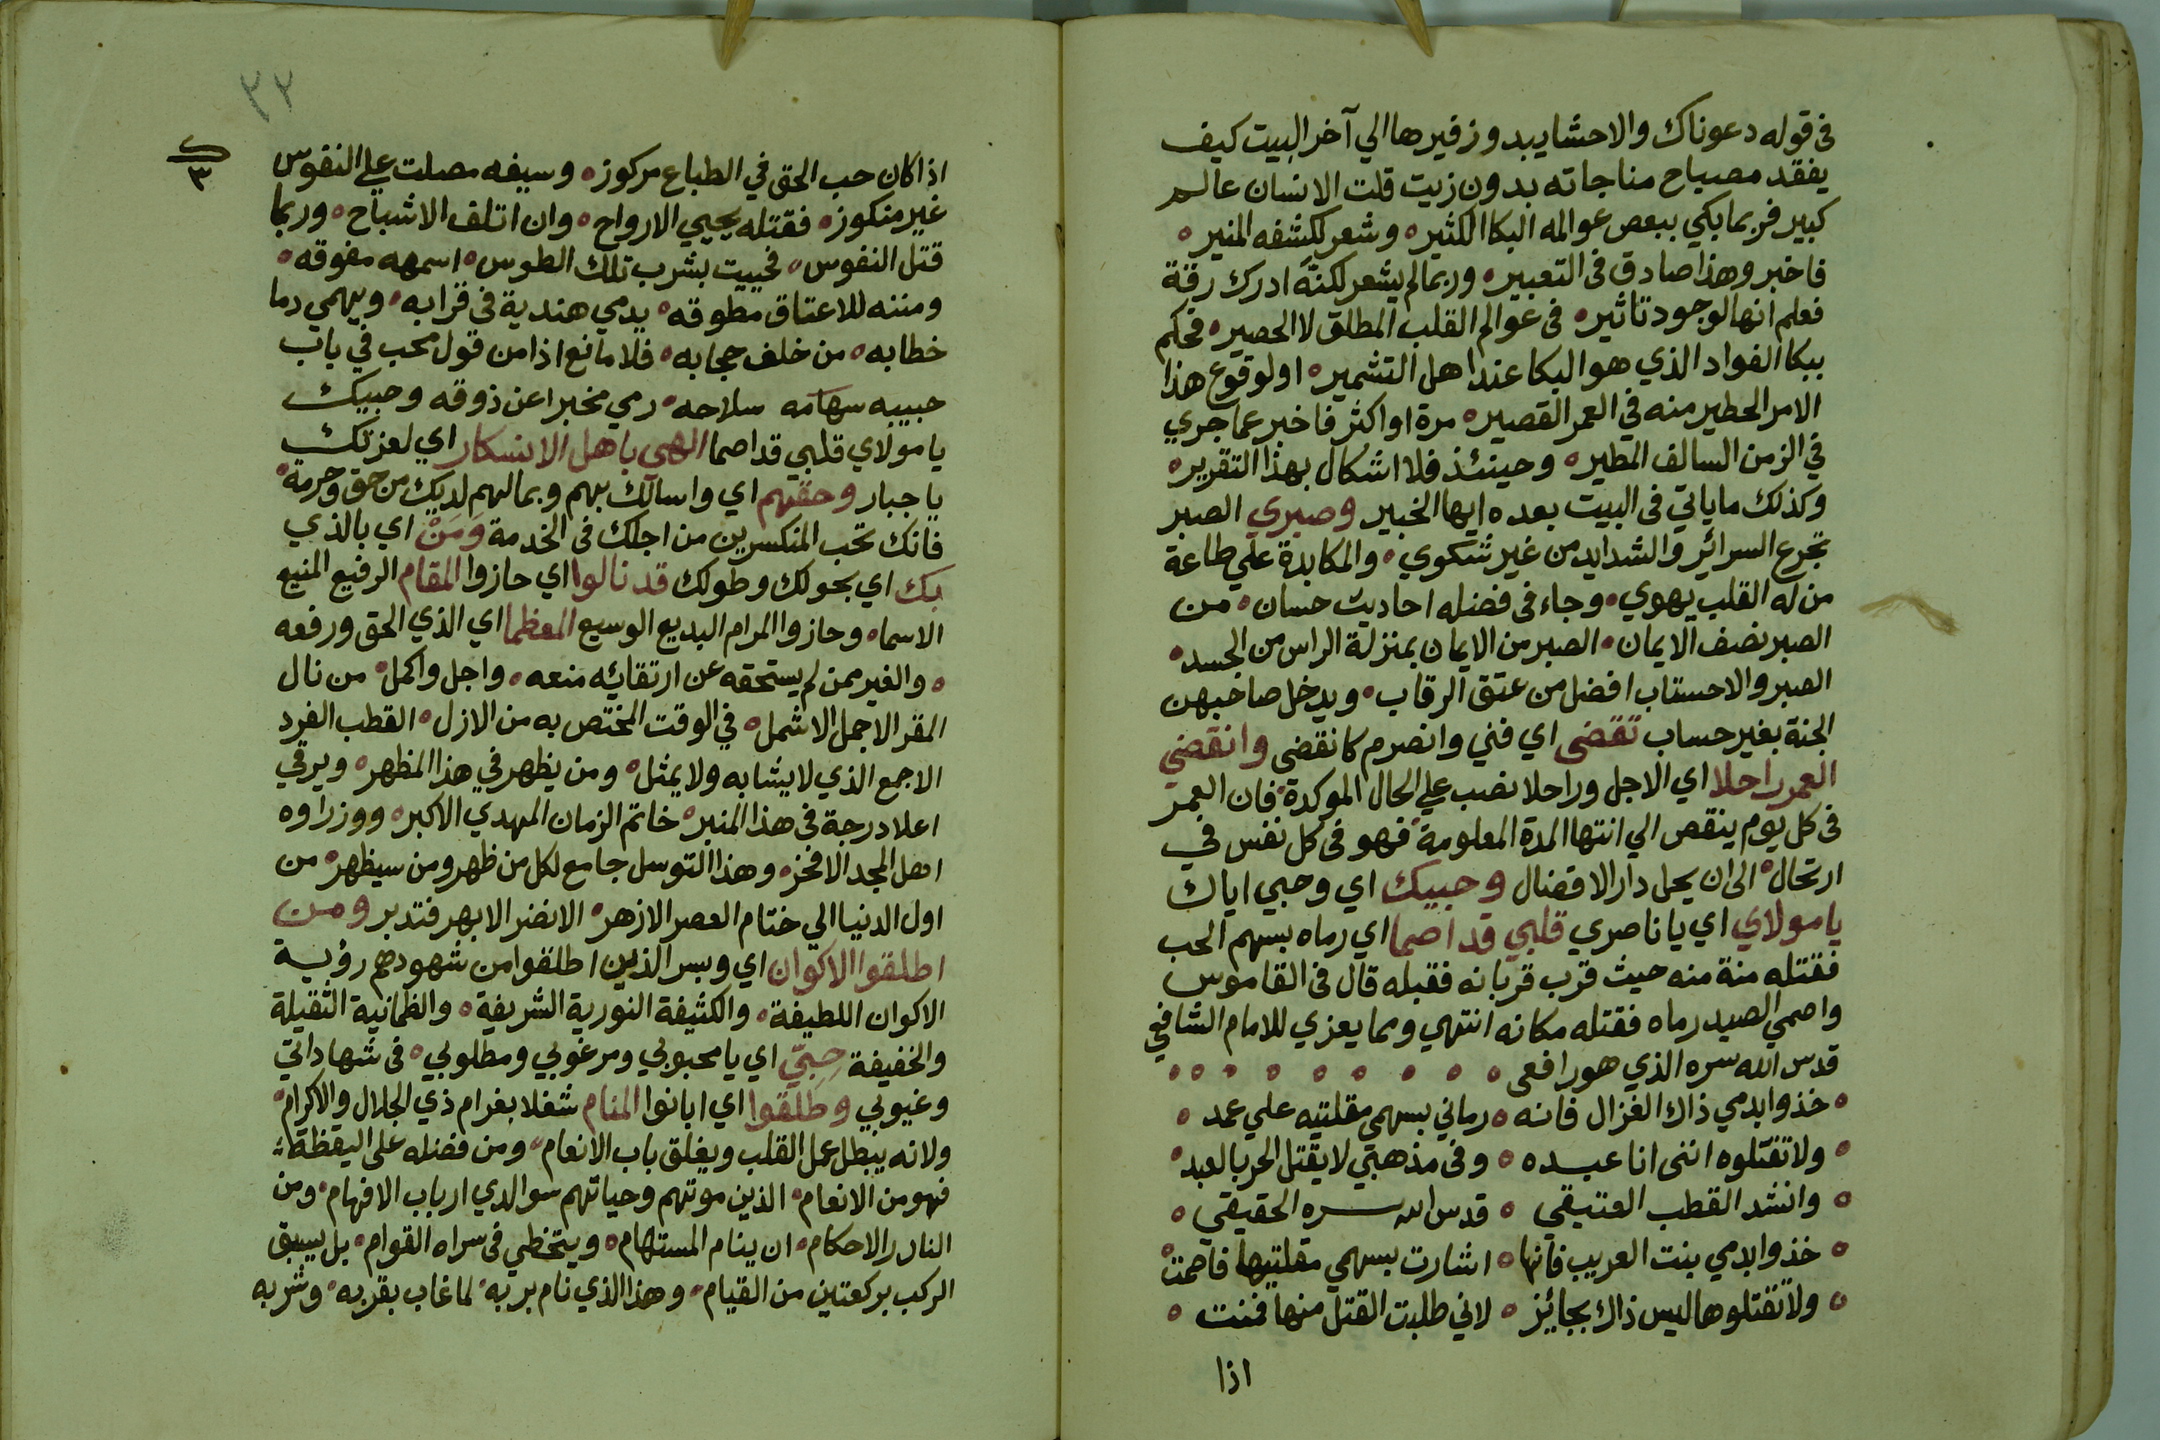 في قوله دعوناك والاحشا يبد وزفيرها الي آخر البيت كيف
يفقد مصباح مناجاته بدون زيت قلت الانسان عالم
كبير فربما بكي ببعض عوالمه البكا الكثير وشعر لكشفه المنير
فاخبر وهذا صادق في التعبير وربما لم يشعر لكنه ادرك رقة
فعلم انها لوجود تاثير في عوالم القلب المطلق لا الحصير فحكم
ببكا الفواد الذي هو البكا عند اهل التشمير او لوقوع هذا
الامر الخطير منه في العمر القصير مرة او اكثر فاخبر عما جري
في الزمن السالف المطير وحينئذ فلا اشكال بهذا التقرير
وكذلك ما ياتي في البيت بعده ايها الخبير وصبري الصبر
تجرع السرائر والشدايد من غير شكوي والمكابدة علي طاعة
من له القلب يهوي وجاء في فضله احاديث حسان من
الصبر نصف الايمان الصبر من الايمان بمنزلة الراس من الجسد
الصبر والاحستاب افضل من عتق الرقاب ويدخل صاحبهن
الجنة بغير حساب تقضي اي فني وانصرم كانقضي وانقضي
العمر راحلا اي الاجل وراحلا نصب علي الحال الموكدة فان العمر
في كل يوم ينقص الي انتها المدة المعلومة فهو في كل نفس في
ارتحال الى ان يحل دار الافضال وحبيك اي وحبي اياك
يا مولاي اي يا ناصري قلبي قد اصما اي رماه بسهم الحب
فقتله منة منه حيث قرب قربانه فقبله قال في القاموس
واصمي الصيد رماه فقتله مكانه انتهي ومما يعزي للامام الشافعي
قدس الله سره الذي هو رافعي
خذوا بدمي ذاك الغزال فانه رماني بسهمي مقلتيه علي عمد
ولا تقتلوه انني انا عبده وفي مذهبي لا يقتل الحر بالعبد
وانشد القطب العتيقي قدس الله سره الحقيقي
خذوا بدمي بنت العريب فانها اشارت بسهمي مقلتيها فاصمت
ولا تقتلوها ليس ذاك بجائز لاني طلبت القتل منها فمنت
اذا
٣٢
٣
اذا كان حب الحق في الطباع مركوز وسيفه مصلت علي النفوس
غير منكوز فقتله يحيي الارواح وان اتلف الاشباح وربما
قتل النفوس فحييت بشرب تلك الطوس اسمهه مفوقه
ومننه للاعتاق مطوقه يدمي هندية في قرابه ويهمي دما
خطابه من خلف حجابه فلا مانع اذا من قول محب في باب
حبيبه سهامه سلاحه رمي مخبرا عن ذوقه وحبيك
يا مولاي قلبي قد اصما الهي باهل الانسكار اي لعزتك
يا جبار وحقهم اي واسالك بهم وبمالهم لديك من حق وحرمة
فانك تحب المنكسرين من اجلك في الخدمة وَمَنْ اي بالذي
بك اي بحولك وطولك قد نالوا اي حازوا المقام الرفيع المنيع
الاسما وحازوا المرام البديع الوسيع المعظما اي الذي الحق ورفعه
والغير ممن لم يستحقه عن ارتقائه منعه واجل واكمل من نال
المقر الاجمل الاشمل في الوقت المختص به من الازل القطب الفرد
الاجمع الذي لا يشابه ولا يمثل ومن يظهر في هذا المظهر ويرقي
اعلا درجة في هذا المنبر خاتم الزمان المهدي الاكبر ووزراوه
اهل المجد الافخر وهذا التوسل جامع لكل من ظهر ومن سيظهر من
اول الدنيا الي ختام العصر الازهر الانضر الابهر فتدبر ومن
اطلقوا الاكوان اي وبسر الذين اطلقوا من شهودهم رؤية
الاكوان اللطيفة والكثيفة النورية الشريفة والظمانية الثقيلة
والخفيفة حِبّي اي يا محبوبي ومرغوبي ومطلوبي في شهاداتي
وغيوبي وطلقوا اي ابانوا المنام شغلا بغرام ذي الجلال والاكرام
ولانه يبطل عمل القلب ويغلق باب الانعام ومن فضله على اليقظة
فهو من الانعام الذين موتهم وحياتهم سوا لدي ارباب الافهام ومن
النادر الاحكام ان ينام المستهام ويتخطي في سراه القوام بل يسبق
الركب بركعتين من القيام وهذا الذي نام بربه لما غاب بقربه وشربه